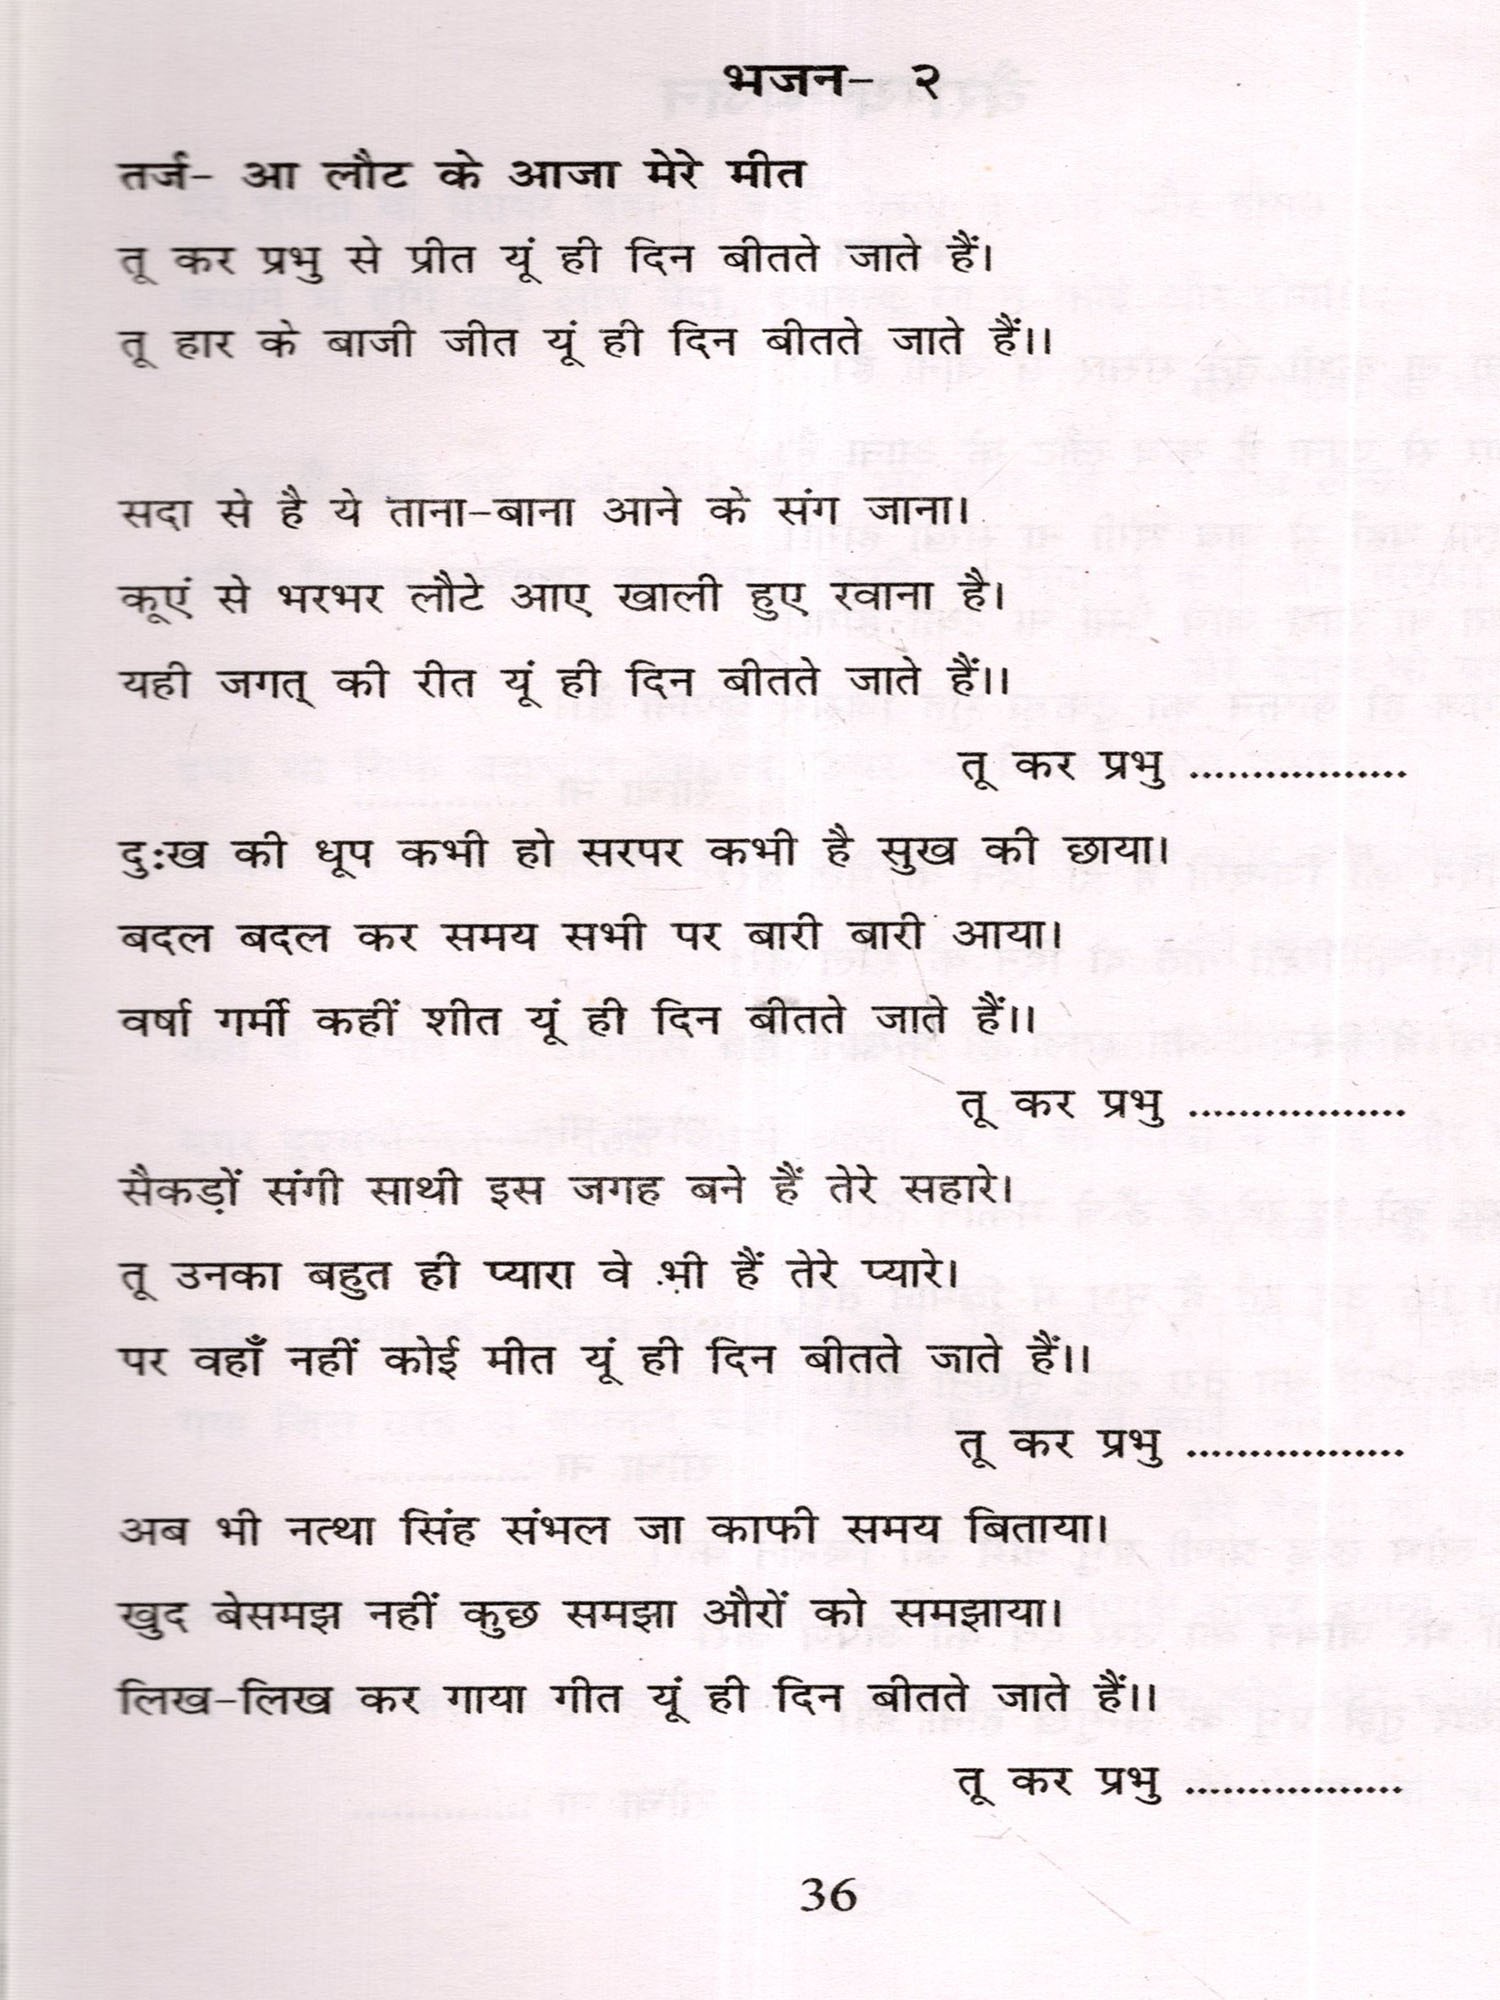 भजन- २
तर्ज- आ लौट के आजा मेरे मीत
तू कर प्रभु से प्रीत यूं ही दिन बीतते जाते हैं।
तू हार के बाजी जीत यूं ही दिन बीतते जाते हैं।।
सदा से है ये ताना-बाना आने के संग जाना।
कूएं से भरभर लौटे आए खाली हुए रवाना है।
यही जगत् की रीत यूं ही दिन बीतते जाते हैं।।
तू कर प्रभु ..................
दुःख की धूप कभी हो सरपर कभी है सुख की छाया।
बदल बदल कर समय सभी पर बारी बारी आया।
वर्षा गर्मी कहीं शीत यूं ही दिन बीतते जाते हैं।।
तू कर प्रभु ..................
सैकड़ों संगी साथी इस जगह बने हैं तेरे सहारे।
तू उनका बहुत ही प्यारा वे भी हैं तेरे प्यारे।
पर वहाँ नहीं कोई मीत यूं ही दिन बीतते जाते हैं।।
तू कर प्रभु ..................
अब भी नत्था सिंह संभल जा काफी समय बिताया।
खुद बेसमझ नहीं कुछ समझा औरों को समझाया।
लिख-लिख कर गाया गीत यूं ही दिन बीतते जाते हैं।।
तू कर प्रभु ..................
36